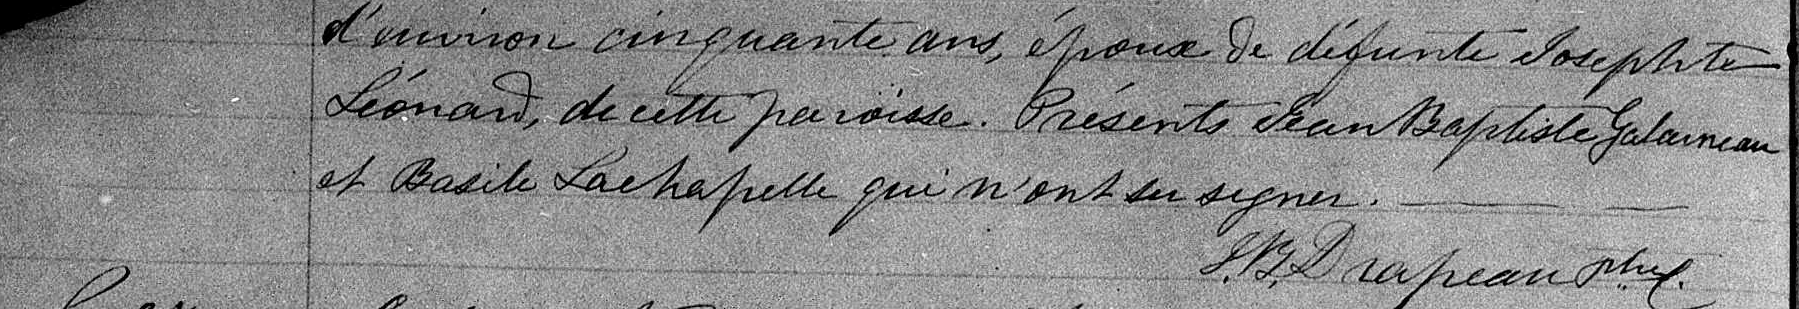 d'environ cinquante ans, époux de défunte Josephte
Léonard, de cette paroisse. Présents Jean Baptiste Galarneau
et Basile Lachapelle qui n'ont su signer.
J.B. Drapeau Ptre